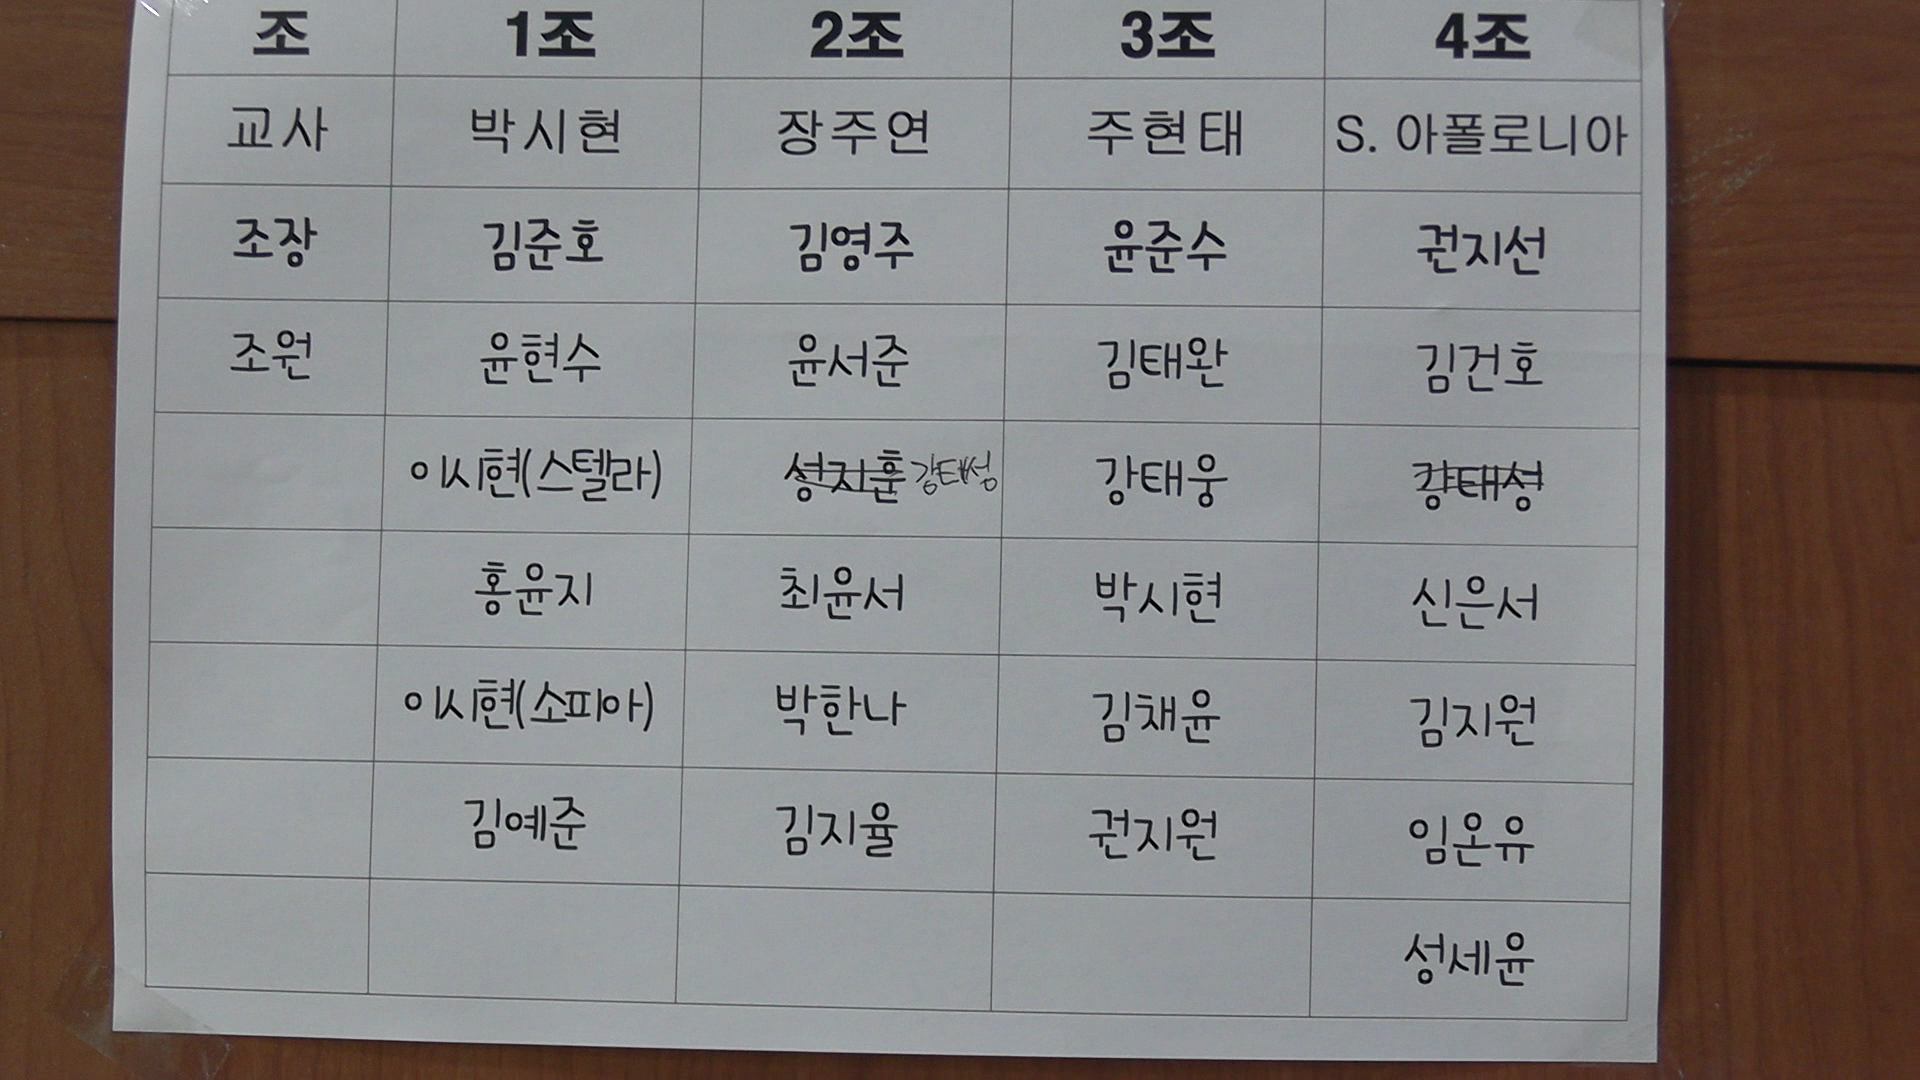 조 1조 2조 3조 4조
교사 박시현 장주연 주현태 S. 아폴로니아
조장 김준호 김영주 윤준수 권지선
조원 윤현수 윤서준 김태완 김건호
이시현(스텔라) 성지훈 강태성 강태웅 강태성
홍윤지 최윤서 박시현 신은서
이시현(소피아) 박한나 김채윤 김지원
김예준 김지율 권지원 임온유
성세윤